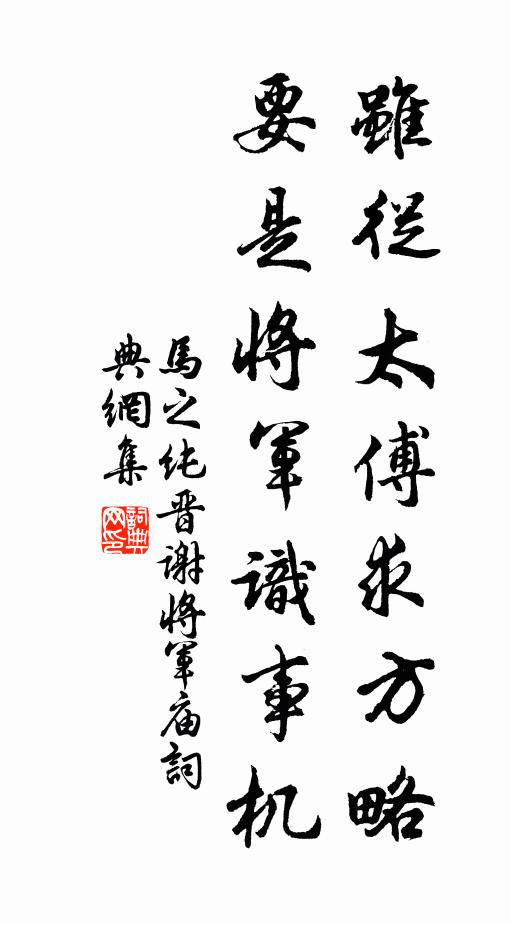 雖從太傅求方略
要是將軍識事机
馬之純晋謝將軍庙詞
典網集
詞典網印